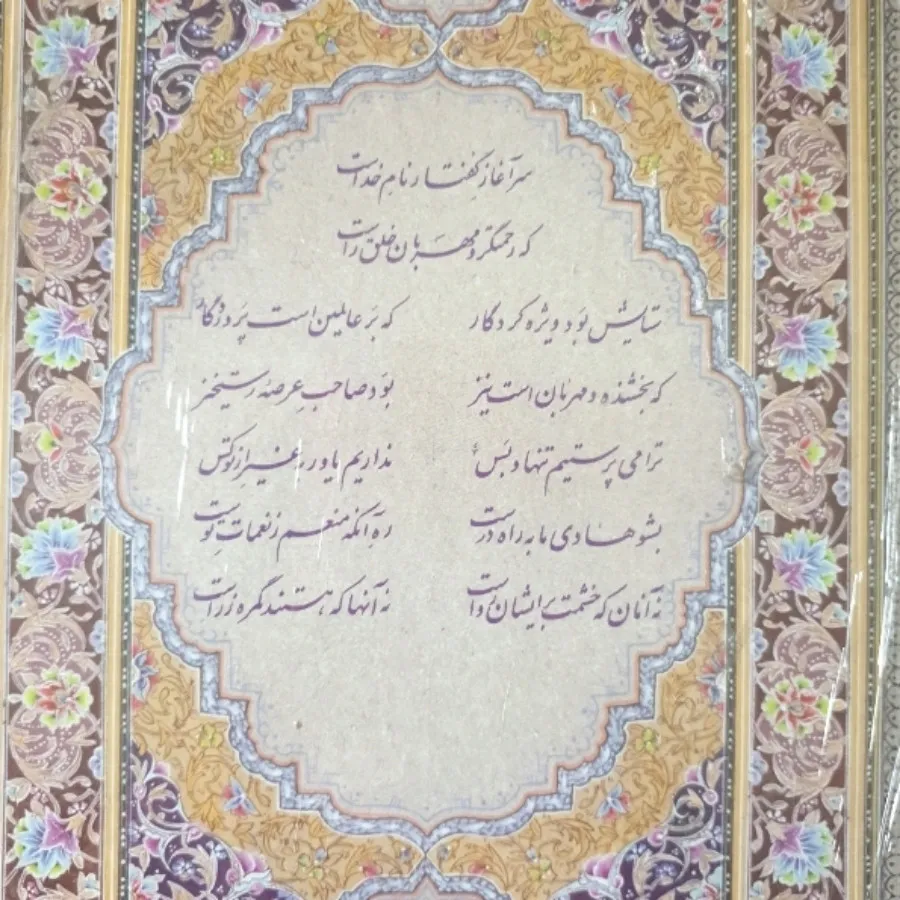 سرآغاز گفتار نام خداست
که رحمتگر و مهربان خلق راست
ستایش بود ویژه کردگار که بر عالمین است پروردگار
که بخشنده و مهربان است نیز بود صاحب عرصه رستخیز
ترا می پرستیم تنها و بس نداریم یاور به غیر از تو کس
بشو هادی ما به راه درست ره آنکه منعم ز نعمات توست
نه آنان که خشمت برایشان رواست نه آنها که هستند گمره ز راست